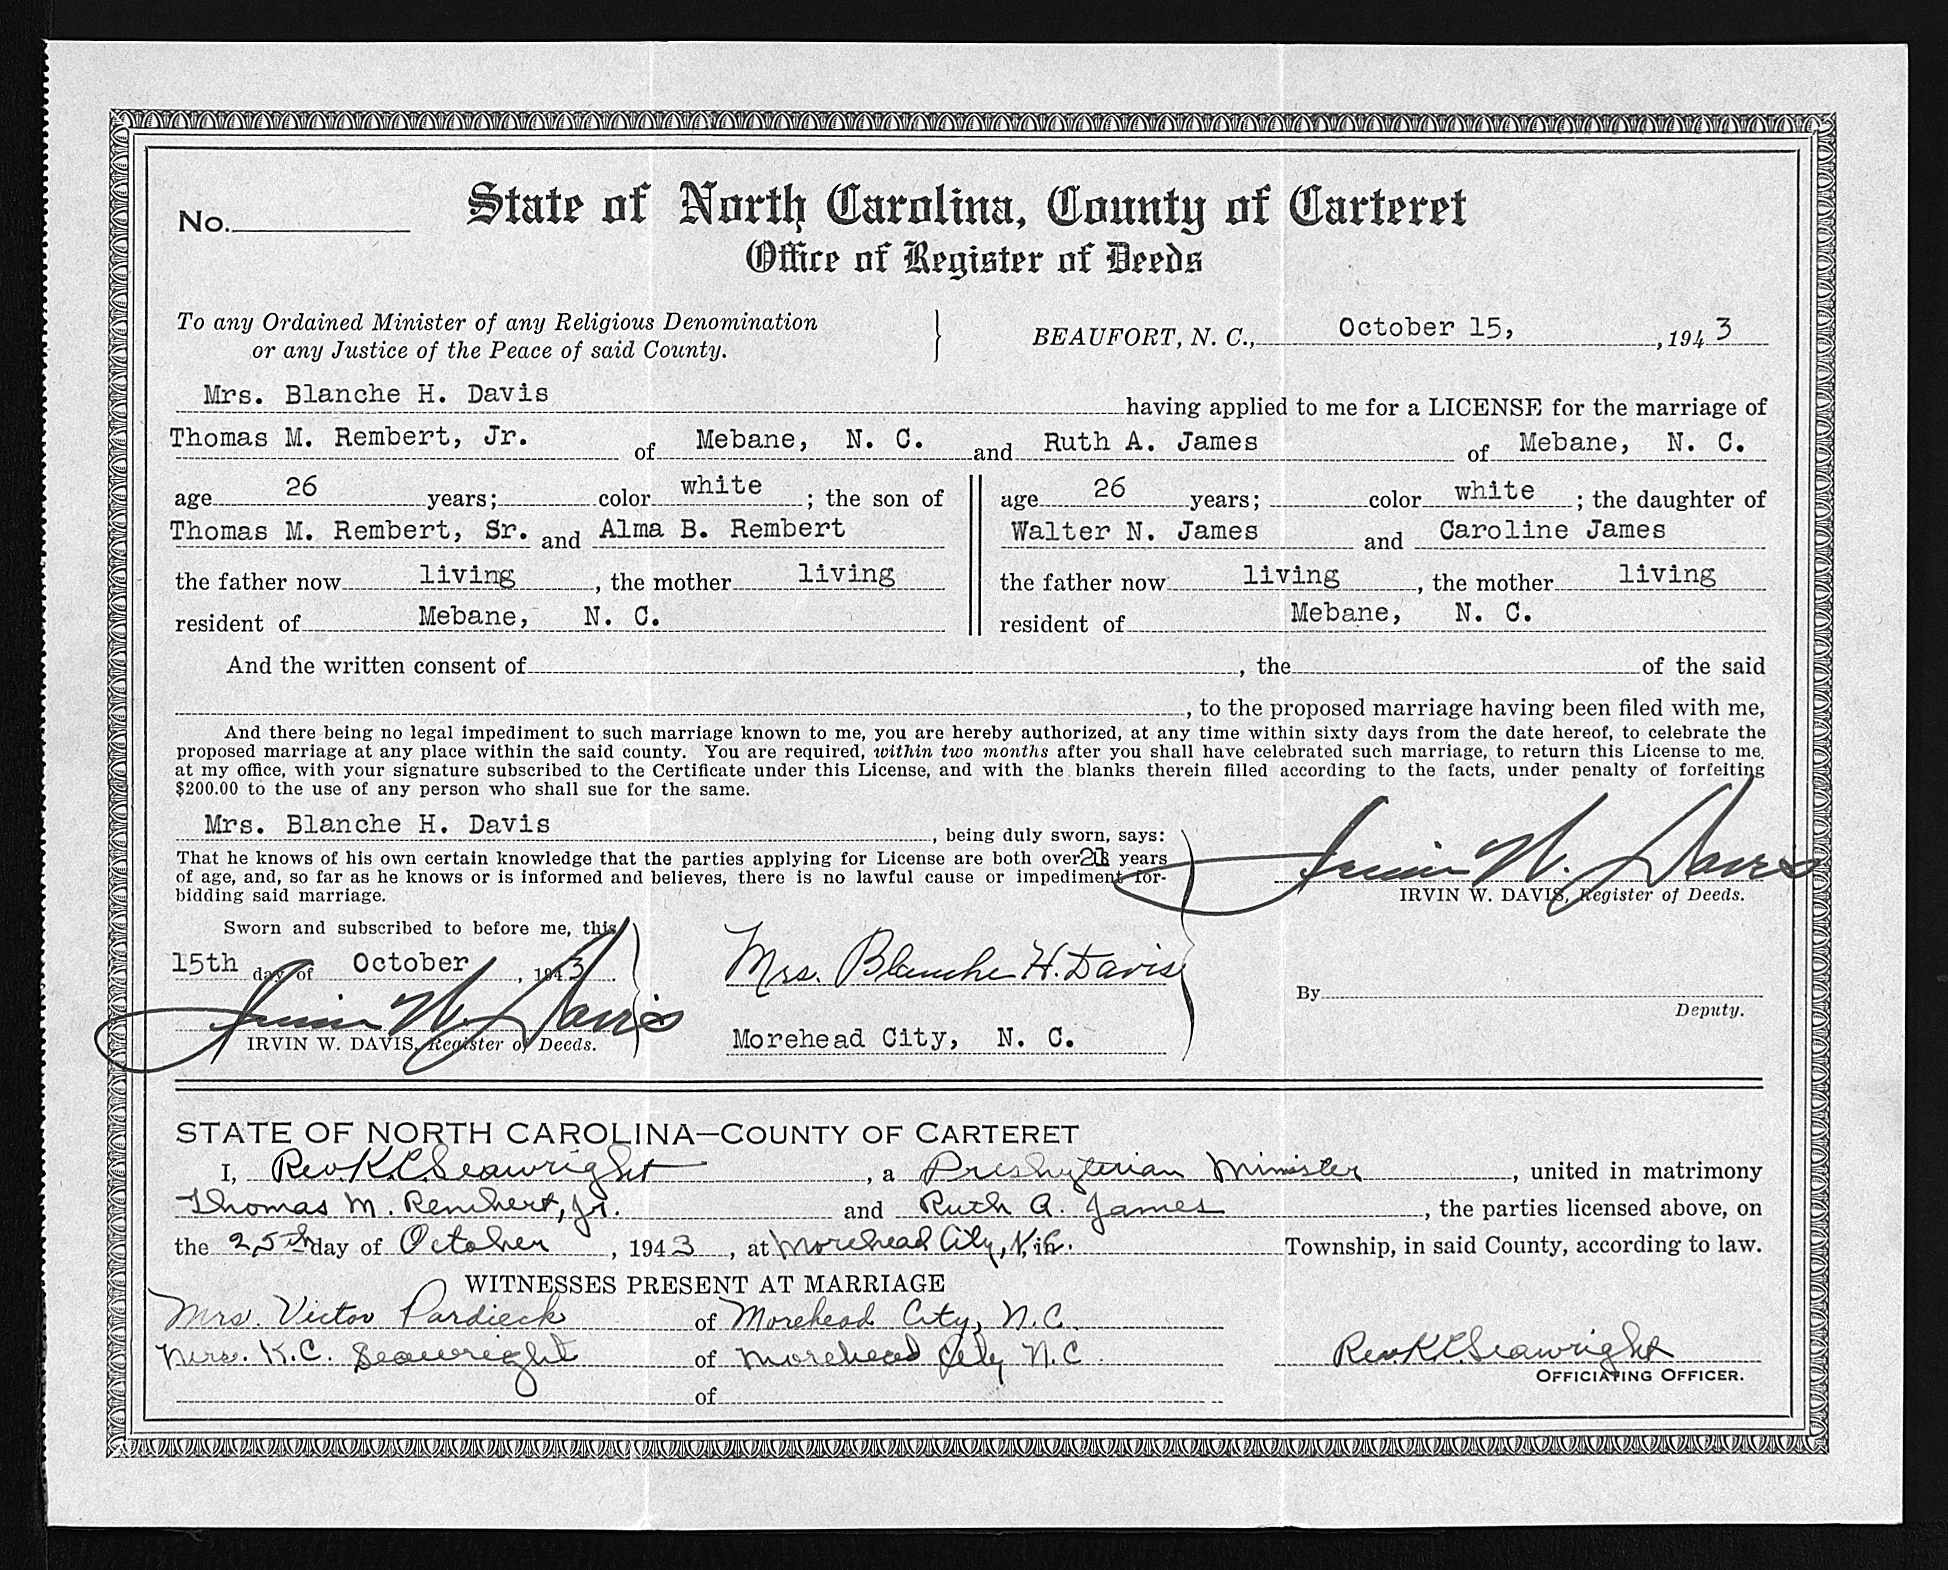 No.
State of North Carolina, County of Carteret
Office of Register of Deeds
To any Ordained Minister of any Religious Denomination
or any Justice of the Peace of said County.
BEAUFORT, N. C., October 15, , 1943
Mrs. Blanche H. Davis having applied to me for a LICENSE for the marriage of
Thomas M. Rembert, Jr. of Mebane, N. C. and Ruth A. James of Mebane, N. C.
age 26 years; color white ; the son of
Thomas M. Rembert, Sr. and Alma B. Rembert
the father now living , the mother living
resident of Mebane, N. C.
age 26 years; color white ; the daughter of
Walter N. James and Caroline James
the father now living , the mother living
resident of Mebane, N. C.
And the written consent of , the of the said
, to the proposed marriage having been filed with me,
And there being no legal impediment to such marriage known to me, you are hereby authorized, at any time within sixty days from the date hereof, to celebrate the
proposed marriage at any place within the said county. You are required, within two months after you shall have celebrated such marriage, to return this License to me,
at my office, with your signature subscribed to the Certificate under this License, and with the blanks therein filled according to the facts, under penalty of forfeiting
$200.00 to the use of any person who shall sue for the same.
Mrs. Blanche H. Davis , being duly sworn, says:
That he knows of his own certain knowledge that the parties applying for License are both over 21 years
of age, and, so far as he knows or is informed and believes, there is no lawful cause or impediment for-
bidding said marriage.
Irvin W. Davis
IRVIN W. DAVIS, Register of Deeds.
Sworn and subscribed to before me, this
15th day of October , 1943
Irvin W. Davis
IRVIN W. DAVIS, Register of Deeds.
Mrs. Blanche H. Davis
Morehead City, N. C.
By
Deputy.
STATE OF NORTH CAROLINA—COUNTY OF CARTERET
I, Rev. K. C. Seawright , a Presbyterian Minister , united in matrimony
Thomas M. Rembert, Jr. and Ruth A. James , the parties licensed above, on
the 25th day of October , 1943 , at Morehead City, N.C. Township, in said County, according to law.
WITNESSES PRESENT AT MARRIAGE
Mrs. Victor Pardieck of Morehead City, N.C.
Mrs. K.C. Seawright of Morehead City N.C.
of
Rev. K. C. Seawright
OFFICIATING OFFICER.